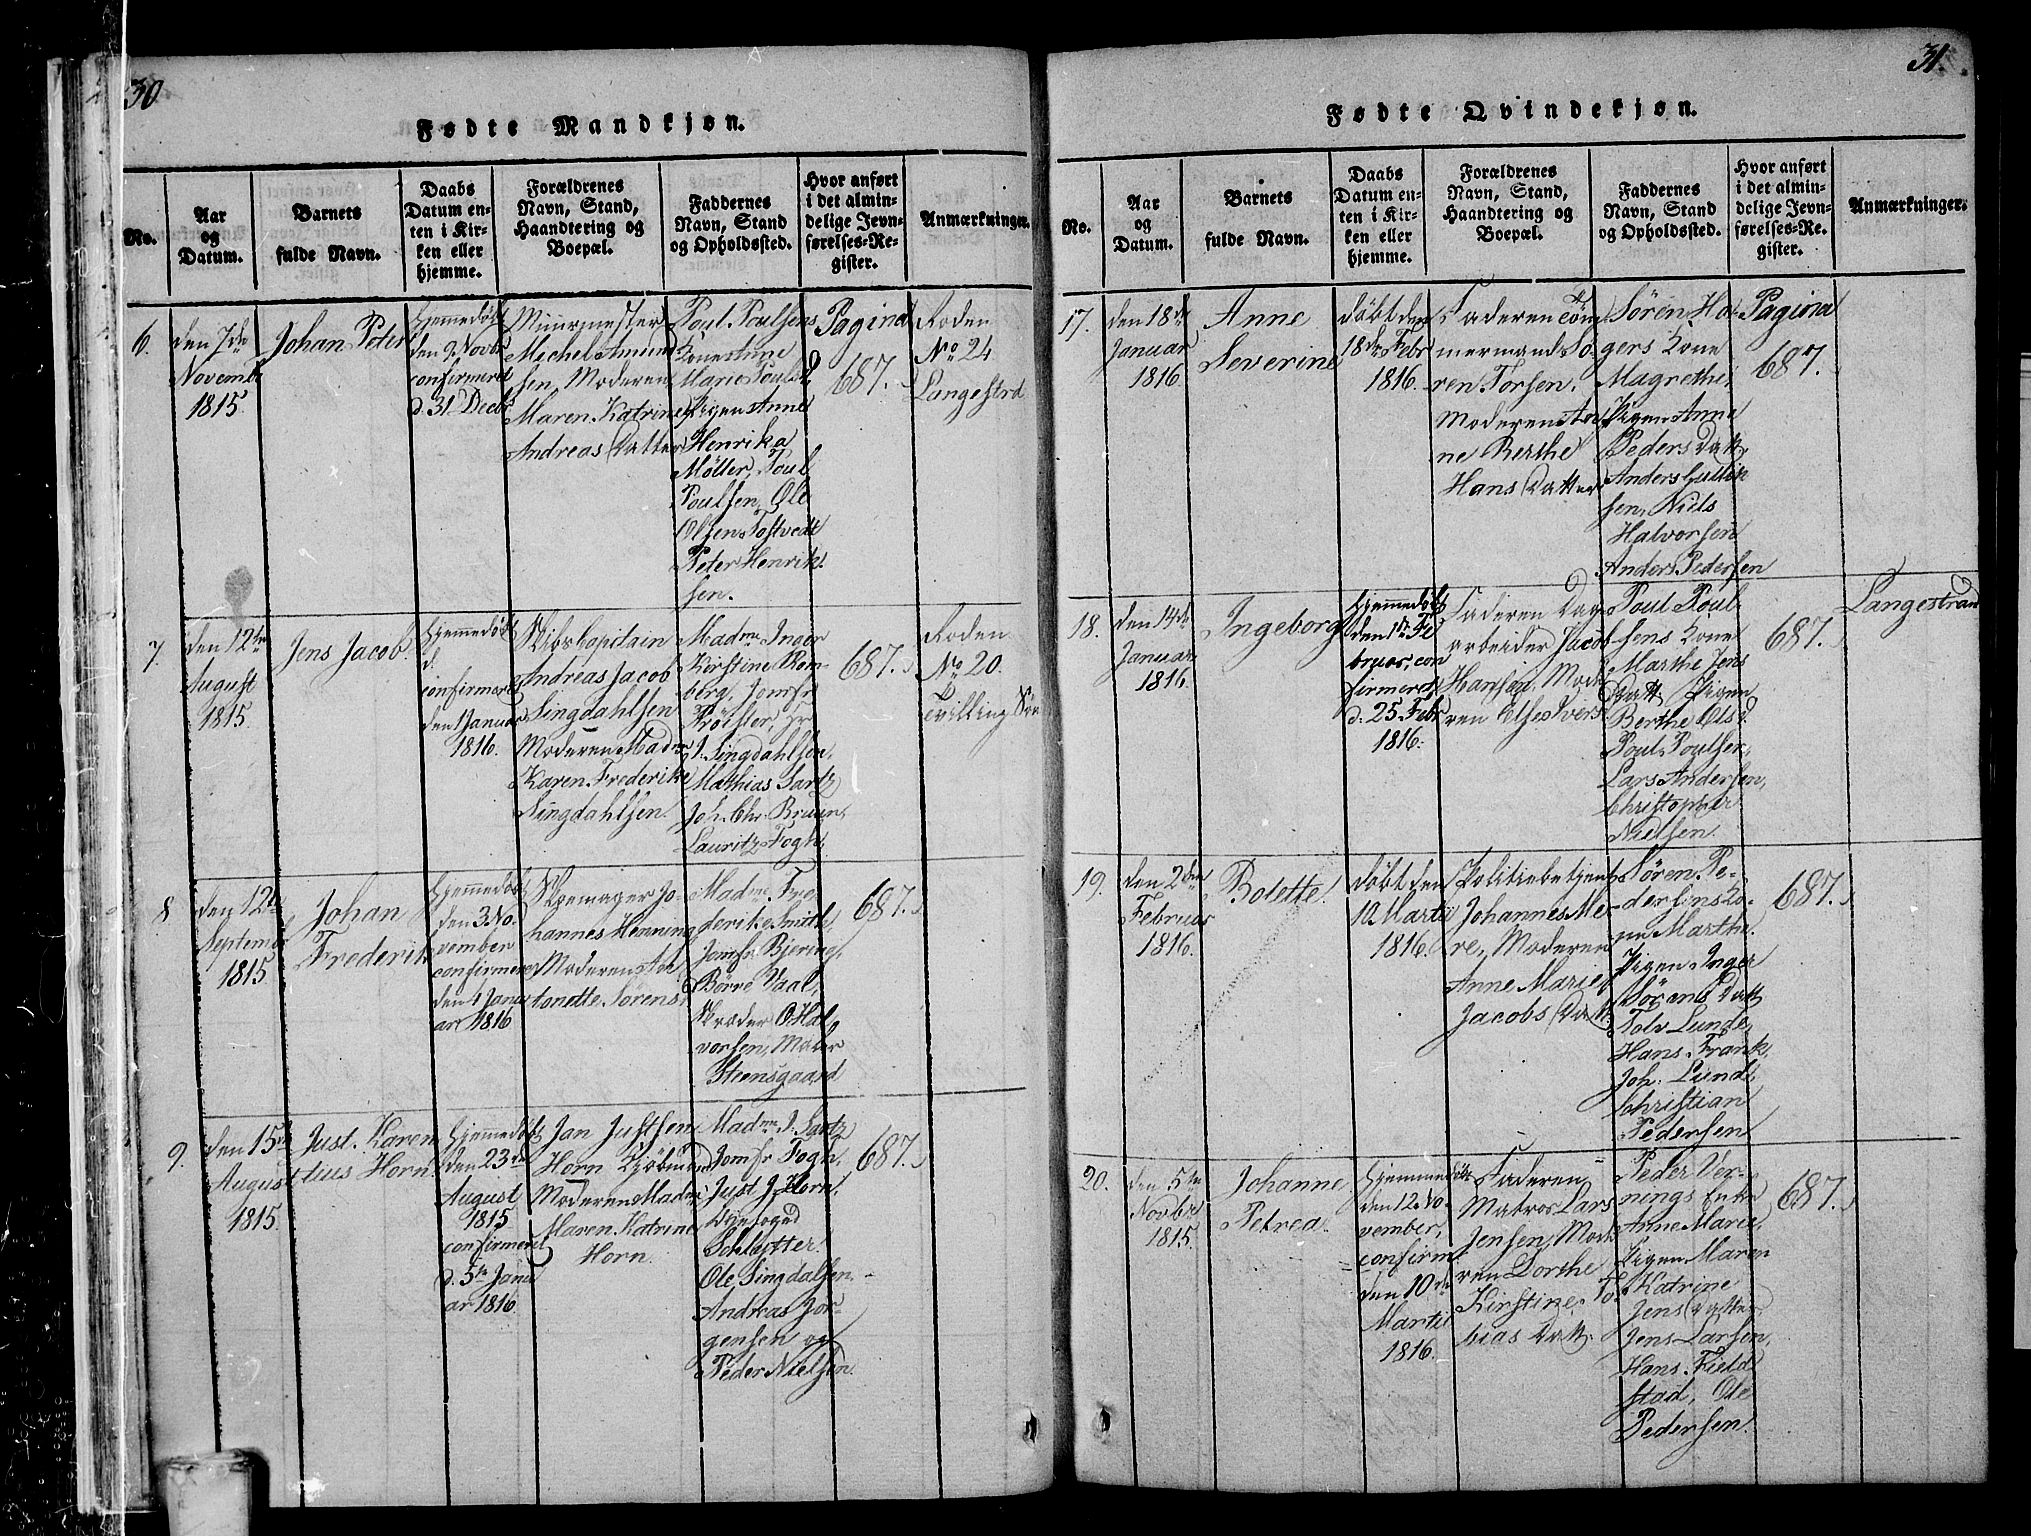 30
Fødte Mandkjøn.
No.
Aar
og
Datum.
Barnets
fulde Navn.
Daabs
Datum en-
ten i Kir-
ken eller
hjemme.
Forældrenes
Navn, Stand,
Haandtering og
Boepæl.
Faddernes
Navn, Stand
og Opholdssted.
Hvor anført
i det almin-
delige Jevn-
førelses-Re-
gister.
Anmærkninger.
6.
den 7de
Novembr
1815.
Johan Peter
Hjemmedöbt
den 9 Novbr
confirmeret
d. 31 Decbr
Muurmester
Michel Amun
sen, Moderen
Maren Katrine
Andreas Datter
Poul Poulsens
Kone Anne
Marie Pouls D.
Pigen Anne
Henrika
Möller, Poul
Poulsen, Ole
Olsen Tostvedt
Peter Henrik
sen.
Pagina
687.
Roden
No 24
Langestrd
7.
den 12te
August
1815.
Jens Jacob.
Hjemmedöbt
d.
confirmeret
den 1 Januar
1816.
Skibskapitain
Andreas Jacob
Singdahlsen
Moderen Madm
Karen Frederike
Singdahlsen.
Madme Inger
Kirstine Rom-
berg, Jomfr
Pröister, Hr
J. Singdahlsen,
Mathias Sartz
Joh. Chr. Bruun,
Lauritz Fogh,
687.
Roden
No 20.
Tvilling Sön
8
den 12te
Septembr
1815
Johan
Frederik
Hjemmedöbt
den 3 No-
vember
confirmeret
den 4 Janu
ar 1816
Skomager Jo-
hannes Henning
Moderen An
tonette Sörens.
Madme Fre
derike Smith,
Jomfr Bjering,
Börre Vaal,
Skræder O Hal
vorsen, Maler
Steensgaard
687.
9.
den 15de
August
1815.
Just Karen
tius Horn.
Hjemmedöbt
den 23de
August
1815
confirmeret
d. 5te Janu
ar 1816.
Jan Justsen
Horn Kjöbmand
Moderen Madm:
Maren Katrine
Horn.
Madme J. Sartz
Jomfr Fogh,
Just J. Horn,
Byefoged
Schlytter.
Ole Singdalsen,
Andreas Jör-
gensen og
Peder Nielsen.
687.
31.
Fødte Qvindekjøn.
No.
Aar
og
Datum.
Barnets
fulde Navn.
Daabs
Datum en-
ten i Kir-
ken eller
hjemme.
Forældrenes
Navn, Stand,
Haandtering og
Boepæl.
Faddernes
Navn, Stand
og Opholdssted.
Hvor anført
i det almin-
delige Jevn-
førelses-Re-
gister.
Anmærkninger.
17.
den 18de
Januar
1816
Anne
Severine
döbt den
18de Febr
1816.
Faderen Töm
mermand Sö-
ren Torsen,
Moderen An
ne Berthe
Hans Datter
Sören Ho-
gers Kone
Magrethe,
Pigen Anne
Peders Datt.
Anders Gullik
sen, Niels
Halvorsen
Anders Pedersen
Pagina
687.
18.
den 14de
Januar
1816.
Ingeborg
Hjemmedöbt
den 1de Fe
bruar, con
firmeret
d. 25 Febr
1816.
Faderen Dag
arbeider Jacob
Hansen, Mode
ren Else Ivers
Poul Poul
sens Kone
Marthe Jens
Datt. Pigen
Berthe Ols D.
Poul Poulsen,
Lars Andersen,
Christopher
Nielsen.
687.
Langestrand
19.
den 2den
Februar
1816.
Bolette.
döbt den
10 Martii
1816.
Politiebetjent
Johannes Me-
re, Moderen
Anne Marie
Jacobs Datt.
Sören Pe-
dersens Ko-
ne Marthe.
Pigen Inger
Sörens Datt.
Tolv Lunde,
Hans Frank,
Joh. Lund,
Christian
Pedersen
687.
20.
den 5te
Novbr
1815.
Johanne
Petrea.
Hjemmedöbt
den 12. No-
vember,
confirm
den 10de
Martii
1816.
Faderen
Matros Lars
Jensen, Mode
ren Dorthe
Kirstine To-
bias Datt.
Peder Ver-
nings Enke
Anne Marie,
Pigen Maren
Katrine
Jens Datter,
Jens Larsen,
Hans Field
stad, Ole
Pedersen.
687.